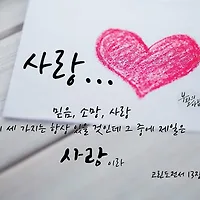 사랑...
믿음, 소망, 사랑
세 가지는 항상 있을 것인데 그 중에 제일은
사랑이라
고린도전서 13장